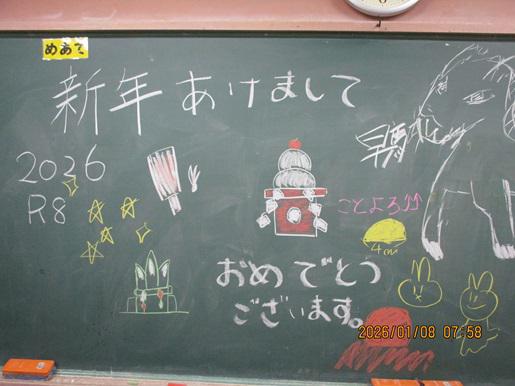 めあて
新年あけまして
2026
R8
ことよろ♪♪
4cm
おめでとう
ございます。
2026/01/08 07:58